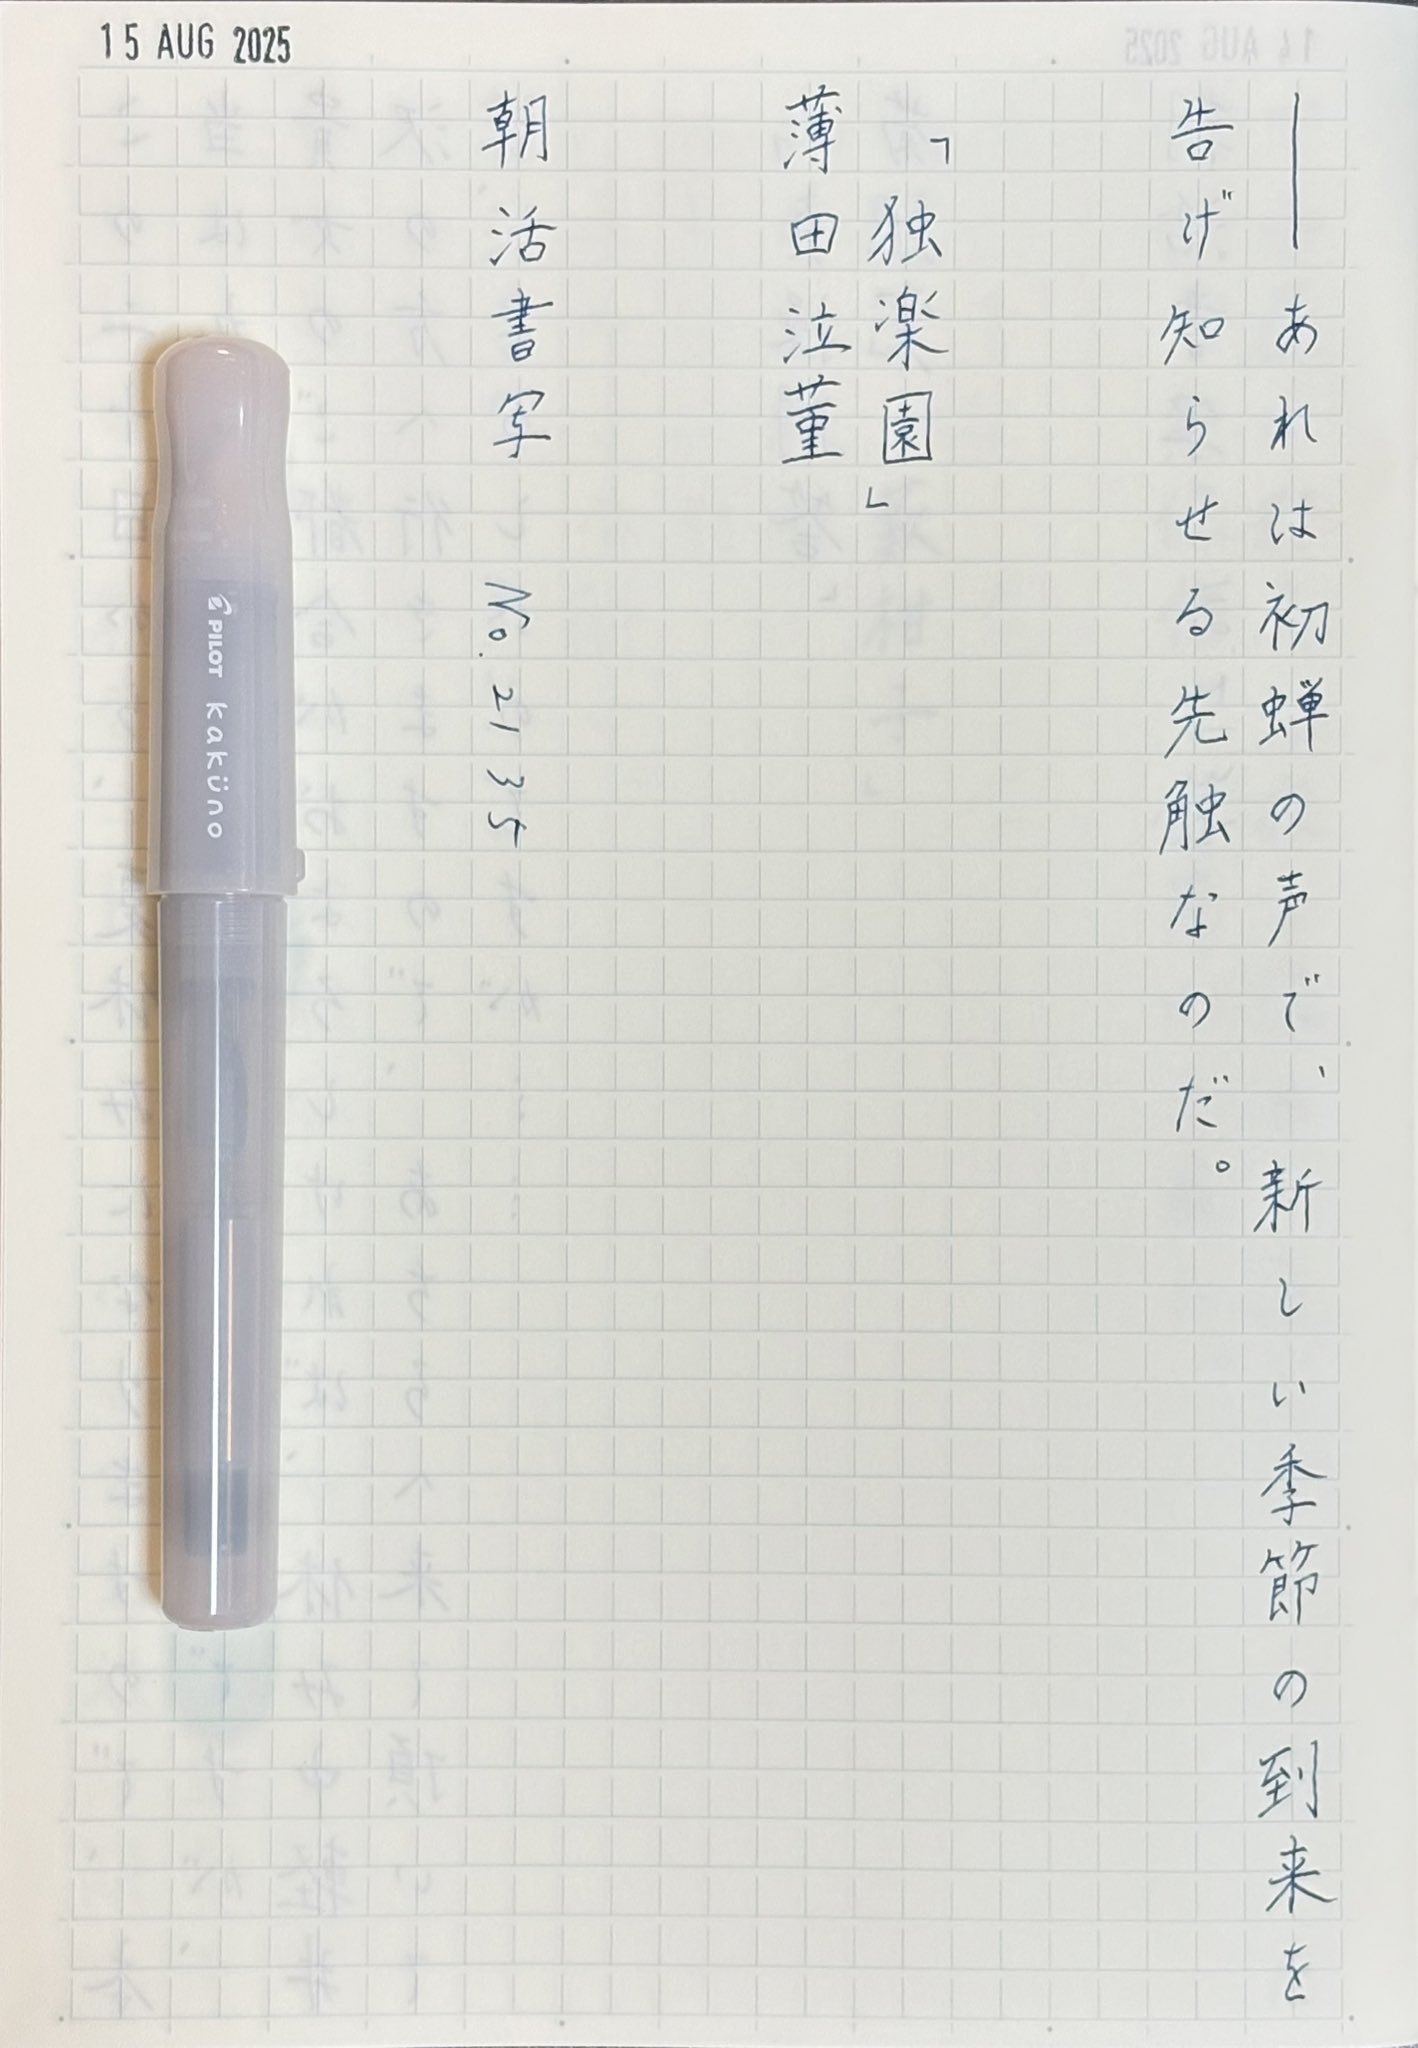 15 AUG 2025
――あれは初蝉の声で、新しい季節の到来を
告げ知らせる先触なのだ。
「独楽園」
薄田泣菫
朝活書写 No.2135
PILOT kaküno